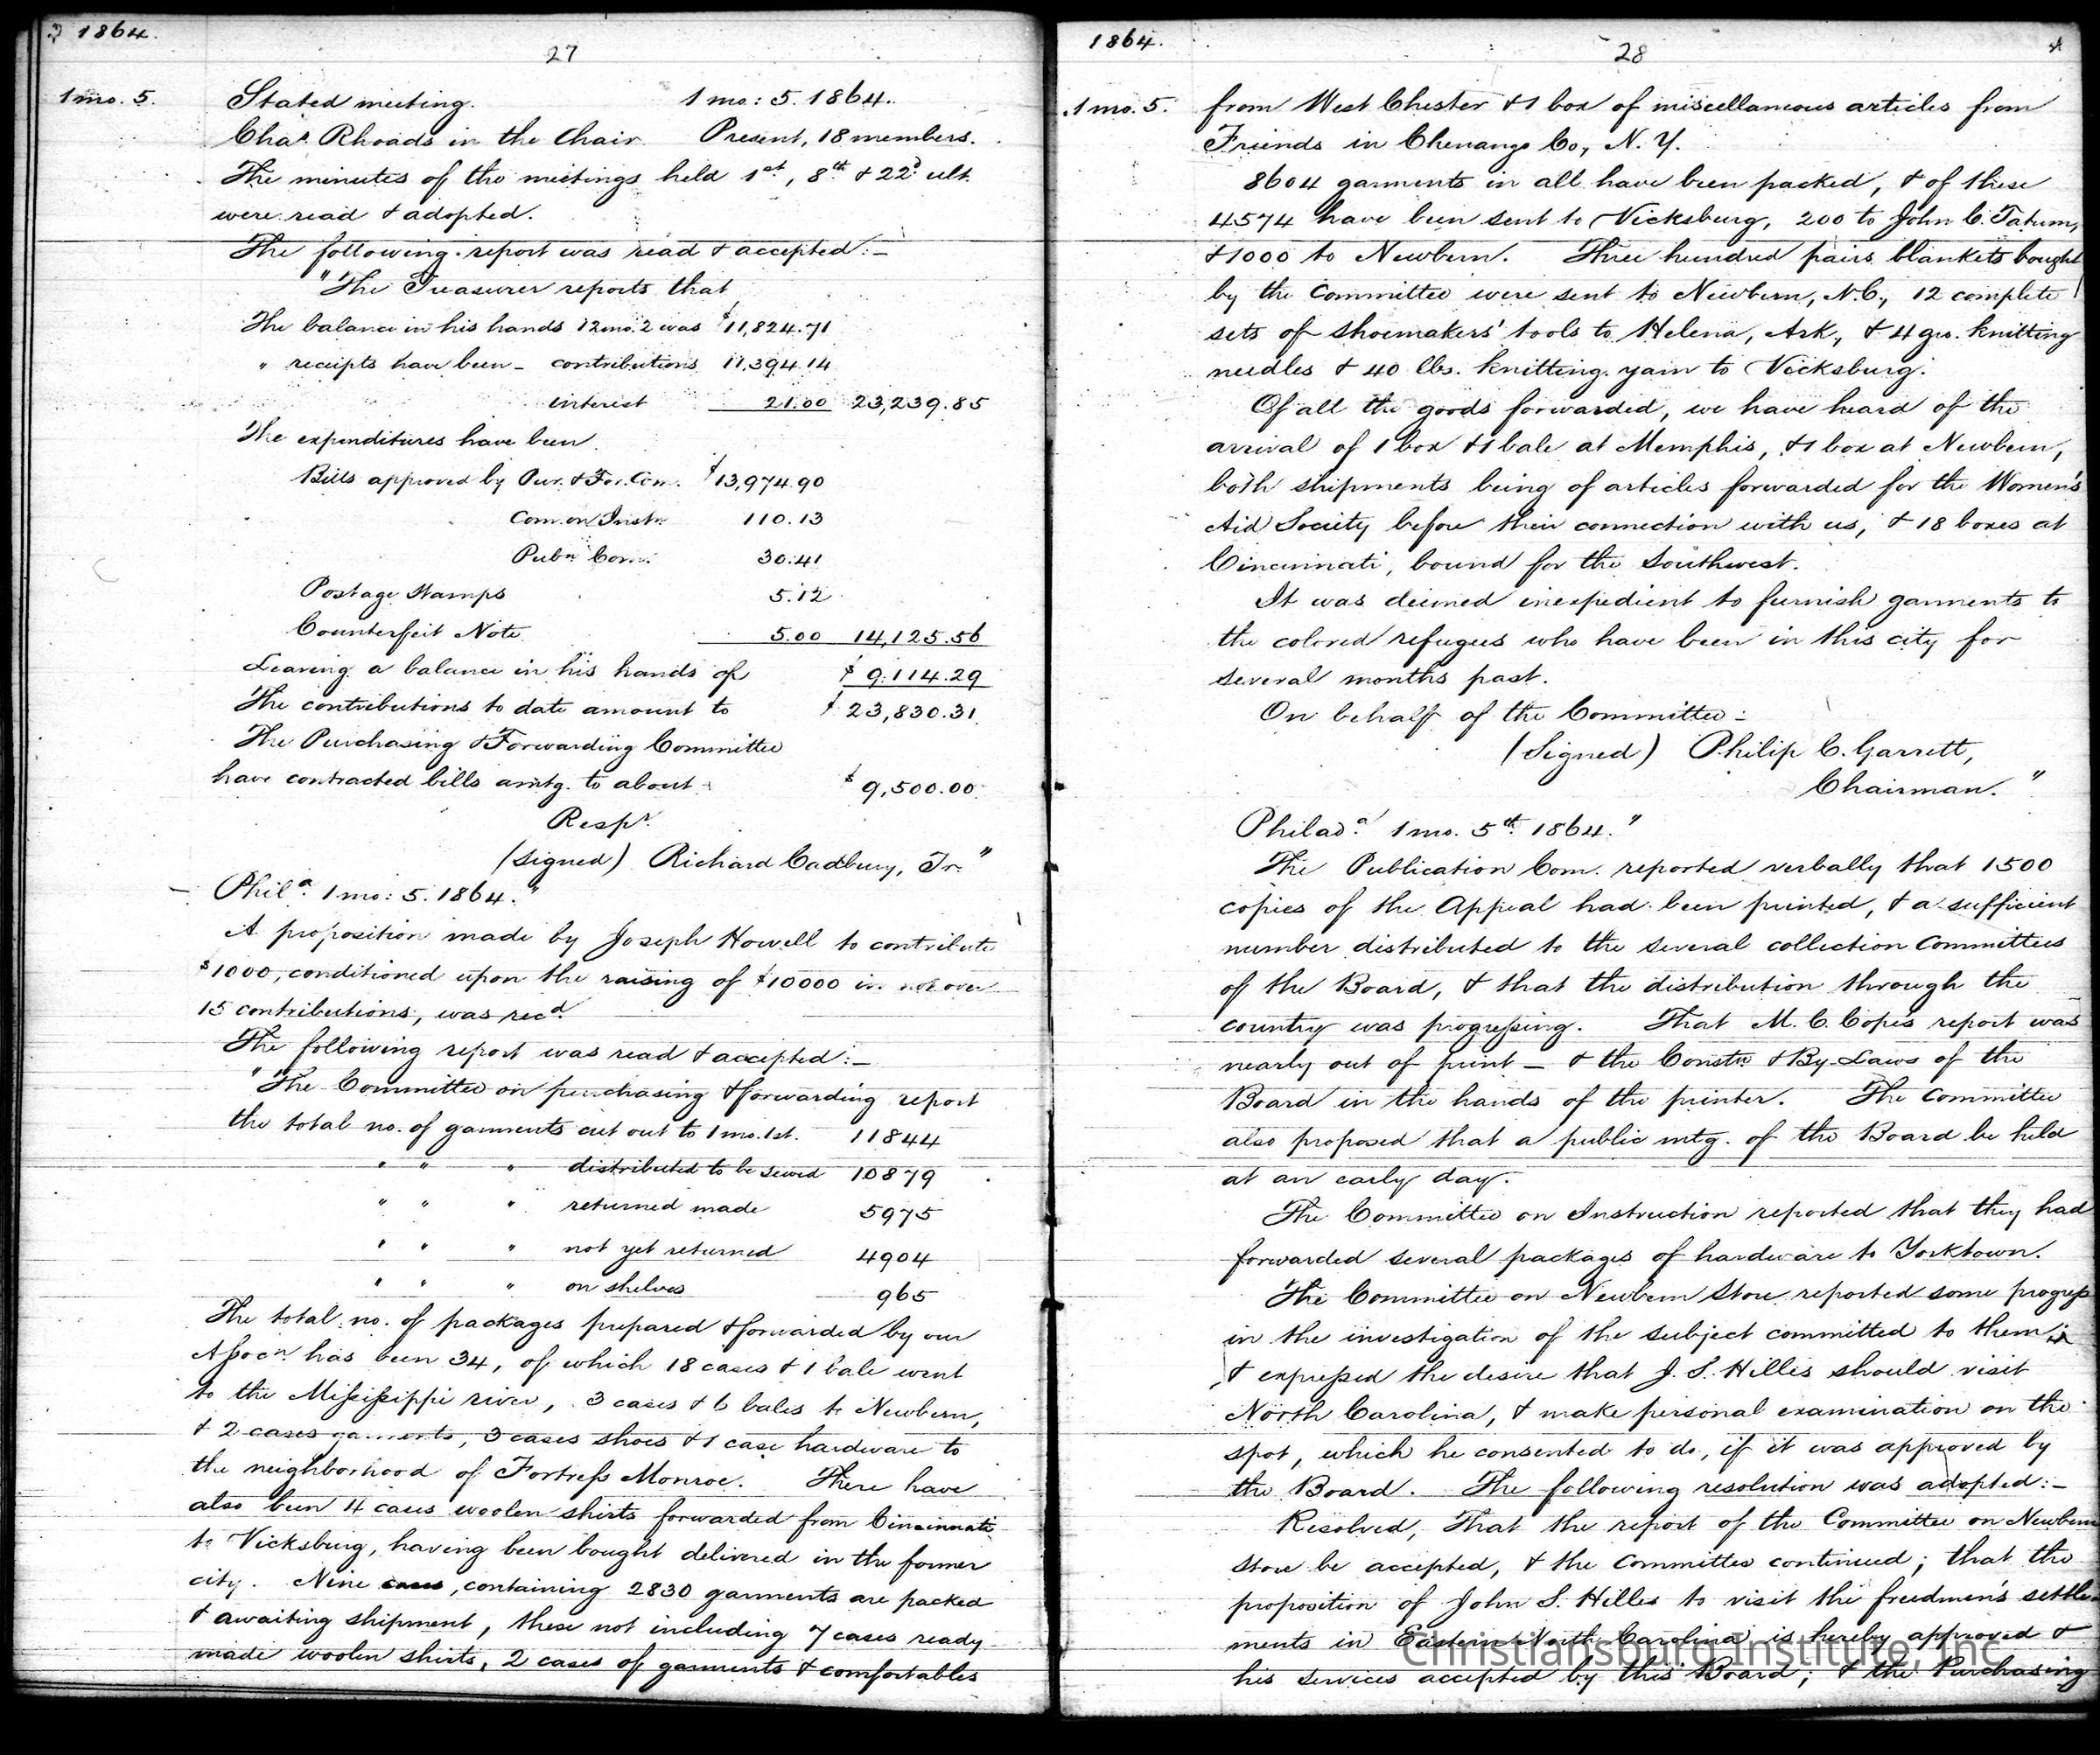 1864.
27
1 mo. 5.
Stated meeting. 1 mo: 5. 1864.
Chas. Rhoads in the Chair. Present, 18 members.
The minutes of the meetings held 1st, 8th & 22d ult.
were read & adopted.
The following report was read & accepted:-
"The Treasurer reports that
The balance in his hands 12 mo. 2 was $11,824.71
" receipts have been - contributions 11,394.14
interest 21.00 23,239.85
The expenditures have been
Bills approved by Pur. & For. Com. $13,974.90
Com. on Instn. 110.13
Pubn. Com. 30.41
Postage Stamps 5.12
Counterfeit Note 5.00 14,125.56
Leaving a balance in his hands of $ 9.114.29
The contributions to date amount to $ 23,830.31
The Purchasing & Forwarding Committee
have contracted bills amtg. to about $ 9,500.00
Respy.
(signed) Richard Cadbury, Jr."
Phila. 1 mo: 5. 1864."
A proposition made by Joseph Howell to contribute
$1000, conditioned upon the raising of $10000 in not over
15 contributions, was recd.
The following report was read & accepted:-
"The Committee on purchasing & forwarding report
the total no. of garments cut out to 1 mo. 1st. 11844
" " " distributed to be sewed 10879
" " " returned made 5975
" " " not yet returned 4904
" " " on shelves 965
The total no. of packages prepared & forwarded by our
Assocn. has been 34, of which 18 cases & 1 bale went
to the Mississippi river, 3 cases & 6 bales to Newbern,
& 2 cases garments, 3 cases shoes & 1 case hardware to
the neighborhood of Fortress Monroe. There have
also been 4 cases woolen shirts forwarded from Cincinnati
to Vicksburg, having been bought delivered in the former
city. Nine cases, containing 2830 garments are packed
& awaiting shipment, these not including 7 cases ready
made woolen shirts, 2 cases of garments & comfortables
1864.
28
1 mo. 5.
from West Chester & 1 box of miscellaneous articles from
Friends in Chenango Co, N. Y.
8604 garments in all have been packed, & of these
4574 have been sent to Vicksburg, 200 to John C. Tatum,
& 1000 to Newbern. Three hundred pairs blankets bought
by the Committee were sent to Newbern, N.C., 12 complete
sets of shoemakers' tools to Helena, Ark., & 4 gro. knitting
needles & 40 lbs. knitting yarn to Vicksburg.
Of all the goods forwarded, we have heard of the
arrival of 1 box & 1 bale at Memphis, & 1 box at Newbern,
both shipments being of articles forwarded for the Women's
Aid Society before their connection with us, & 18 boxes at
Cincinnati, bound for the Southwest.
It was deemed inexpedient to furnish garments to
the colored refugees who have been in this city for
several months past.
On behalf of the Committee:
(Signed) Philip C. Garrett,
Chairman."
Philada. 1 mo. 5th 1864."
The Publication Com. reported verbally that 1500
copies of the Appeal had been printed, & a sufficient
number distributed to the several collection Committees
of the Board, & that the distribution through the
country was progressing. That M. C. Cope's report was
nearly out of print - & the Constn. & By-Laws of the
Board in the hands of the printer. The Committee
also proposed that a public mtg. of the Board be held
at an early day.
The Committee on Instruction reported that they had
forwarded several packages of hardware to Yorktown.
The Committee on Newbern Store reported some progress
in the investigation of the subject committed to them
& expressed the desire that J. S. Hilles should visit
North Carolina, & make personal examination on the
spot, which he consented to do, if it was approved by
the Board. The following resolution was adopted:-
Resolved, That the report of the Committee on Newbern
Store be accepted, & the Committee continued; that the
proposition of John S. Hilles to visit the freedmen's settle-
ments in Eastern North Carolina is hereby approved &
his services accepted by this Board; & the Purchasing
Christiansburg Institute, Inc